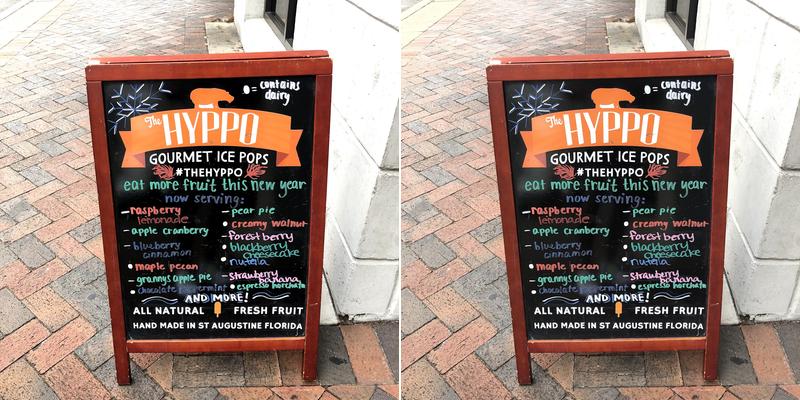 o = contains
dairy
The HYPPO
GOURMET ICE POPS
#THEHYPPO
eat more fruit this new year
now serving:
- raspberry
lemonade
- apple cranberry
- blueberry
cinnamon
• maple pecan
- grannys apple pie
• chocolate peppermint
- pear pie
• creamy walnut
- forest berry
• blackberry
cheesecake
• nutella
- strawberry
banana
• espresso horchata
AND MORE!
ALL NATURAL FRESH FRUIT
HAND MADE IN ST AUGUSTINE FLORIDA
o = contains
dairy
The HYPPO
GOURMET ICE POPS
#THEHYPPO
eat more fruit this new year
now serving:
- raspberry
lemonade
- apple cranberry
- blueberry
cinnamon
• maple pecan
- grannys apple pie
• chocolate peppermint
- pear pie
• creamy walnut
- forest berry
• blackberry
cheesecake
• nutella
- strawberry
banana
• espresso horchata
AND MORE!
ALL NATURAL FRESH FRUIT
HAND MADE IN ST AUGUSTINE FLORIDA